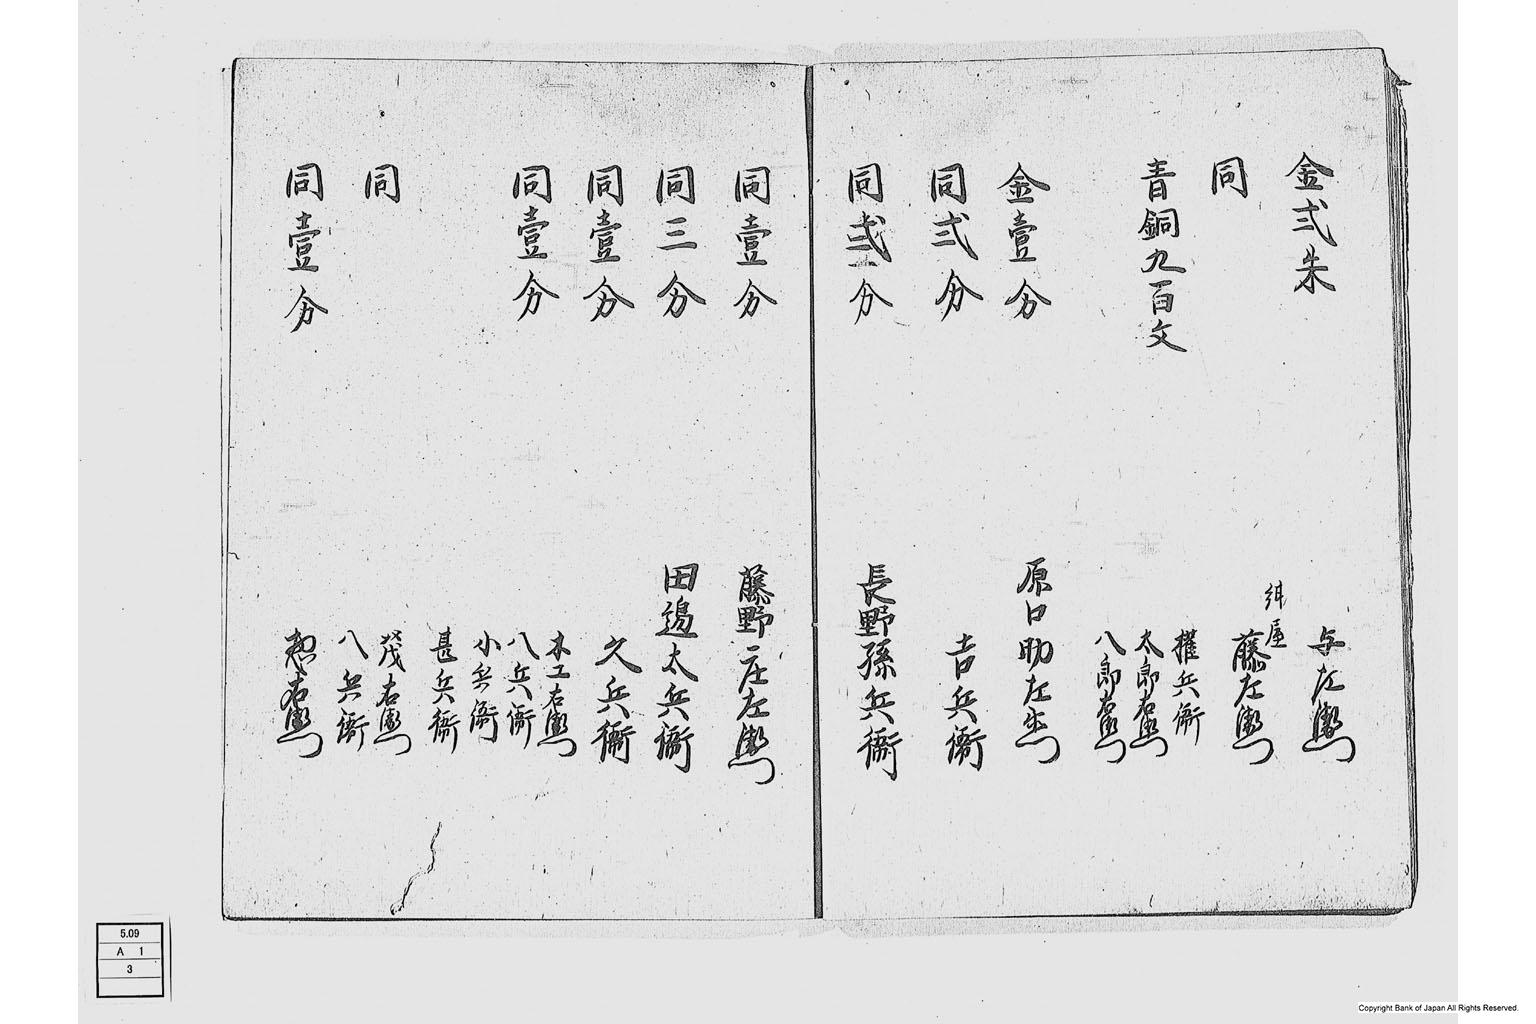 金弐朱
与左衛門
同
紺屋
藤左衛門
青銅九百文
権兵衛
太郎右衛門
八郎右衛門
金壹分
原口助左衛門
同弐分
吉兵衛
同弐分
長野孫兵衛
同壹分
藤野庄左衛門
同三分
田邊太兵衛
同壹分
久兵衛
同壹分
木工右衛門
八兵衛
小兵衛
甚兵衛
同
茂右衛門
八兵衛
同壹分
惣右衛門
5.09
A 1
3
Copyright Bank of Japan All Rights Reserved.